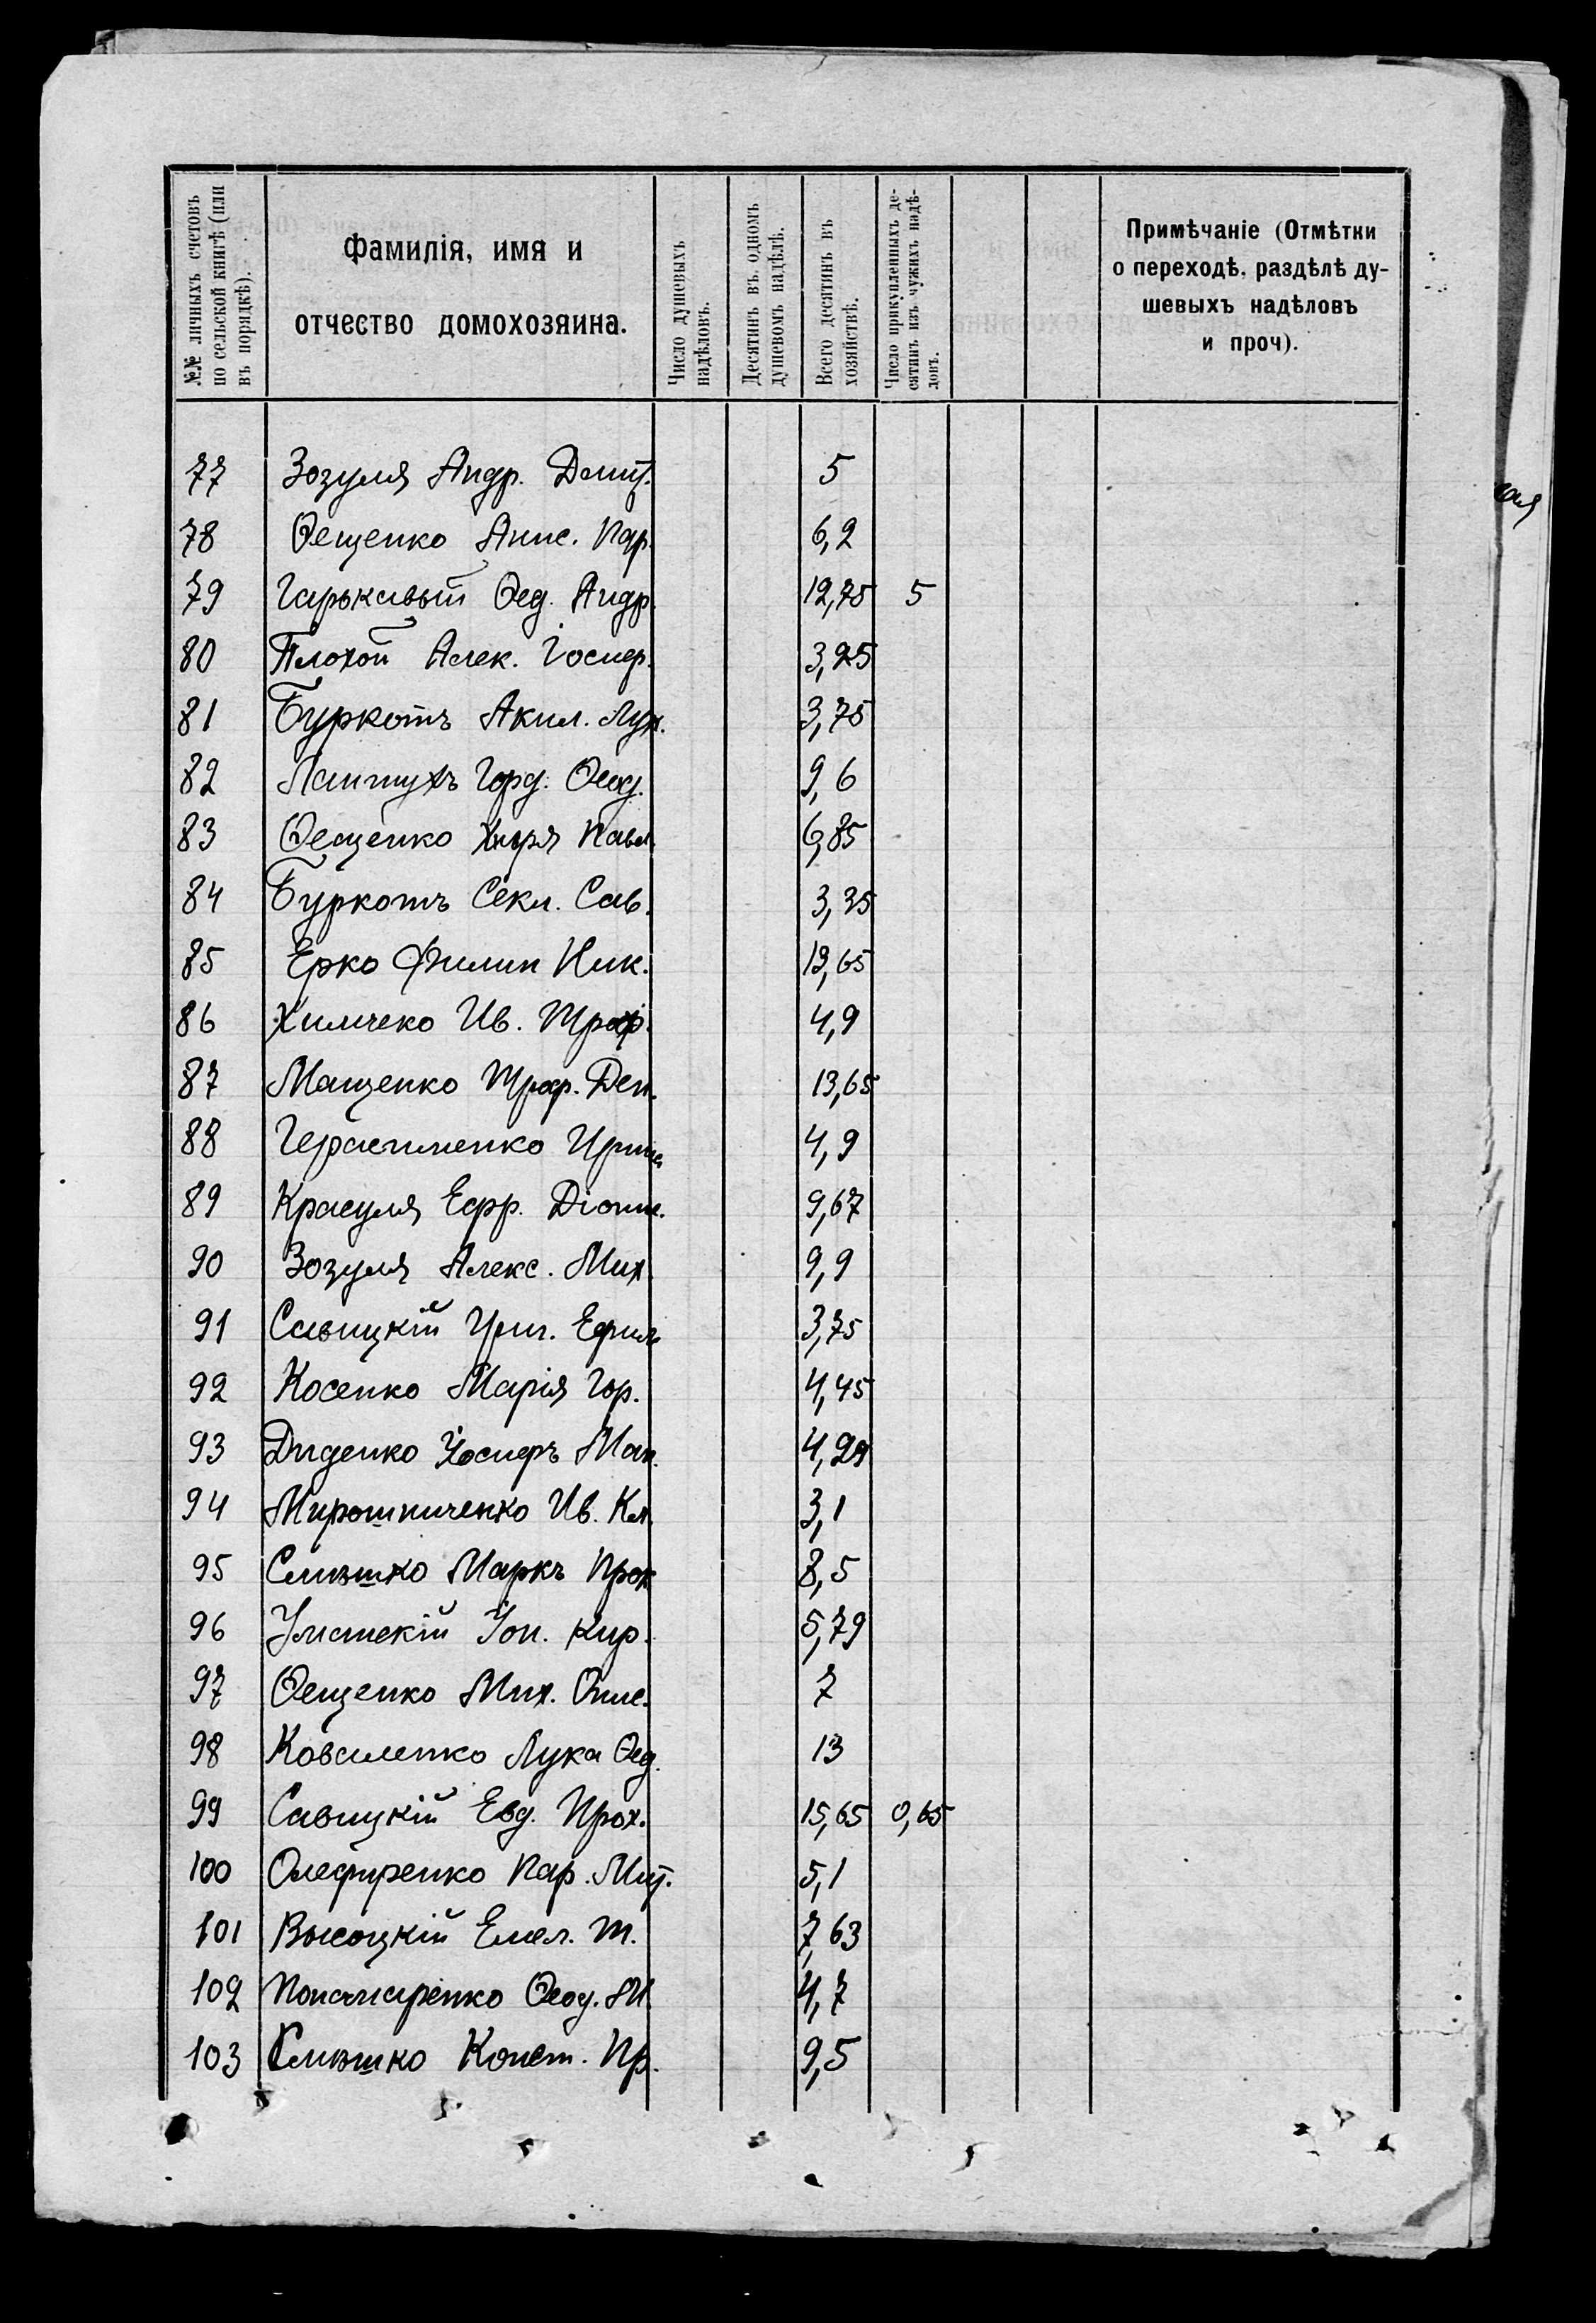 №№ личныхъ счетовъ по сельской книгѣ (или въ порядкѣ).
Фамилія, имя и
отчество домохозяина.
Число душевыхъ надѣловъ.
Десятинъ въ одномъ душевомъ надѣлѣ.
Всего десятинъ въ хозяйствѣ.
Число прикупленныхъ десятинъ изъ чужихъ надѣловъ.
Примѣчаніе (Отмѣтки
о переходѣ, раздѣлѣ ду-
шевыхъ надѣловъ
и проч).
77 Зозуля Андр. Дмит. 5
78 Ѳещенко Анис. Пар. 6,2
79 Гарькавый Ѳед. Андр. 12,75 5
80 Плохой Алек. Іосиф. 3,25
81 Буркотъ Акил. Лук. 3,75
82 Лантухъ Горд. Ѳеод. 9,6
83 Ѳещенко Павл. 6,85
84 Буркотъ Секл. Сав. 3,35
85 Ерко Филип Ник. 13,65
86 Химчеко Ив. Троф. 4,9
87 Мащенко Троф. Ден. 13,65
88 Герасименко Ирина 4,9
89 Красуля Ефр. Діонис. 9,67
90 Зозуля Алекс. Мих. 9,9
91 Савицкій Григ. Ефим 3,75
92 Косенко Марія Гор. 4,45
93 Диденко Іосифъ Мак. 4,29
94 Мирошниченко Ив. Кл. 3,1
95 Слизшко Маркъ Прок 8,5
96 Уманскій Іон. Кир. 5,79
97 Ѳещенко Мих. Онис. 7
98 Коваленко Лука Ѳед. 13
99 Савицкій Евд. Прох. 15,65 0,65
100 Олефиренко Пар. Мит. 5,1
101 Высоцкій Емел. Т. 7,63
102 Понамаренко Ѳеод. М. 4,7
103 Слизшко Конст. Пр. 9,5